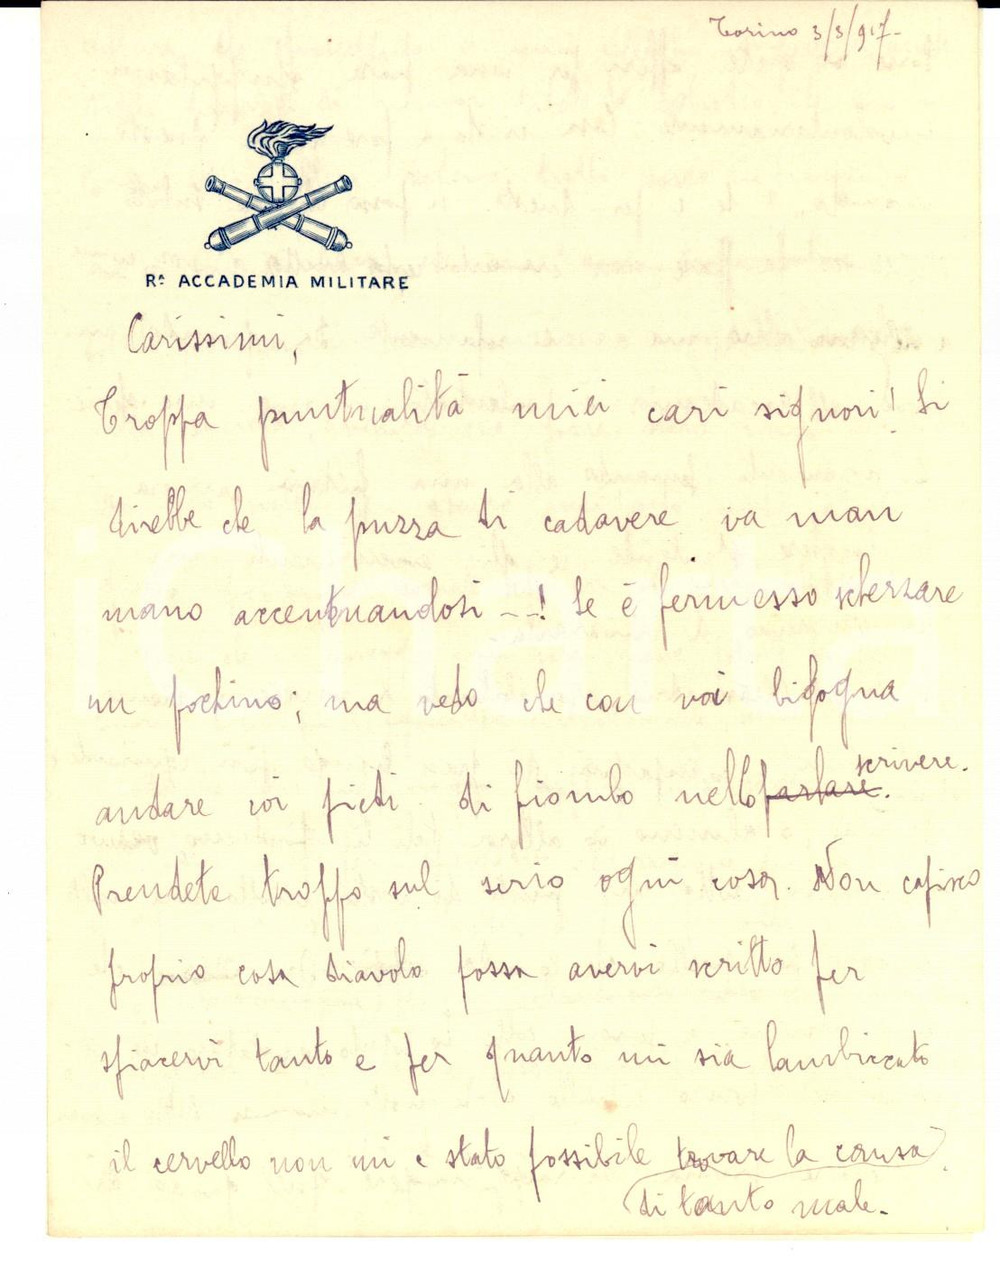 Torino 3/3/917-
Rª ACCADEMIA MILITARE
Carissimi,
Troppa puntualità miei cari signori! Si
direbbe che la puzza di cadavere va man
mano accentuandosi --! Se è permesso scherzare
un pochino; ma vedo che con voi bisogna
andare coi piedi di piombo nello parlare scrivere.
Prendete troppo sul serio ogni cosa. Non capisco
proprio cosa diavolo possa avervi scritto per
spiacervi tanto e per quanto mi sia lambiccato
il cervello non mi è stato possibile trovare la causa
di tanto male.-